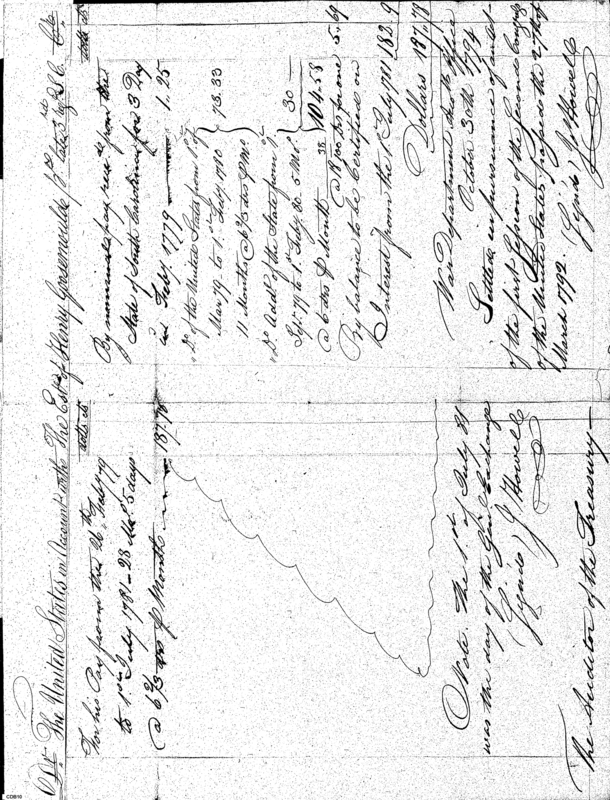 Dr. The United States in Account with The Est. of Henry Greenwude Pt. late 3d Regt. S. C. Cr.
dolls cts
For his Pay from this 26th Feby 79
to 1st July 1781 - 28 Mos. 5 days
@ 6 2/3 drs p Month 187.78
Note. The 1st of July 81
was the day of the Genl. Exchange
(Signed) J Howell
The Auditor of the Treasury
dolls cts
By nominal pay recd. from the
State of South Carolina for 3 Day
in Feby. 1779 1.25
" Do. of the United States from 1st of
Mar 79 to 1st Feby. 1780
11 Months @ 6 2/3 drs p Mo. 73.33
" Do. Addl. of the State from 1st
Sept. 79 to 1st Feby. 80. 5 Mos.
@ 6 drs p Month 30
104.58
@ 18 38/100 for one 5.69
By balance to be Certified on
Interest from the 1st July 1781 182.9
Dollars 187.78
War Department Accts. Office
October 30th 1794
Settled in pursuance of an Act
of the first Session of the Second Congress
of the United States passed the 27th of
March 1792. (Signed) J Howell
CDB10